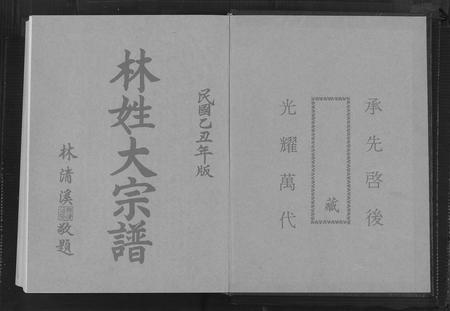 承先啓後
藏
光耀萬代
民國乙丑年版
林姓大宗譜
林清溪敬題